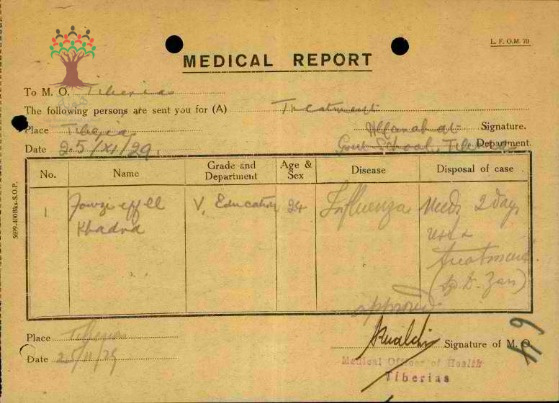 L. F. O. M. 10
MEDICAL REPORT
To M. O. Tiberias
The following persons are sent you for (A) Treatment
Place Tiberias Signature.
Date 25/XI/29. Govt School, Tiberias Department.
No. Name Grade and Department Age & Sex Disease Disposal of case
1 Fawzi eff el Khadra V, Education 24 Influenza Needs 2 days
rest &
treatment
approved
Place Tiberias
Signature of M. O.
Date 25/11/29
Medical Officer of Health
Tiberias